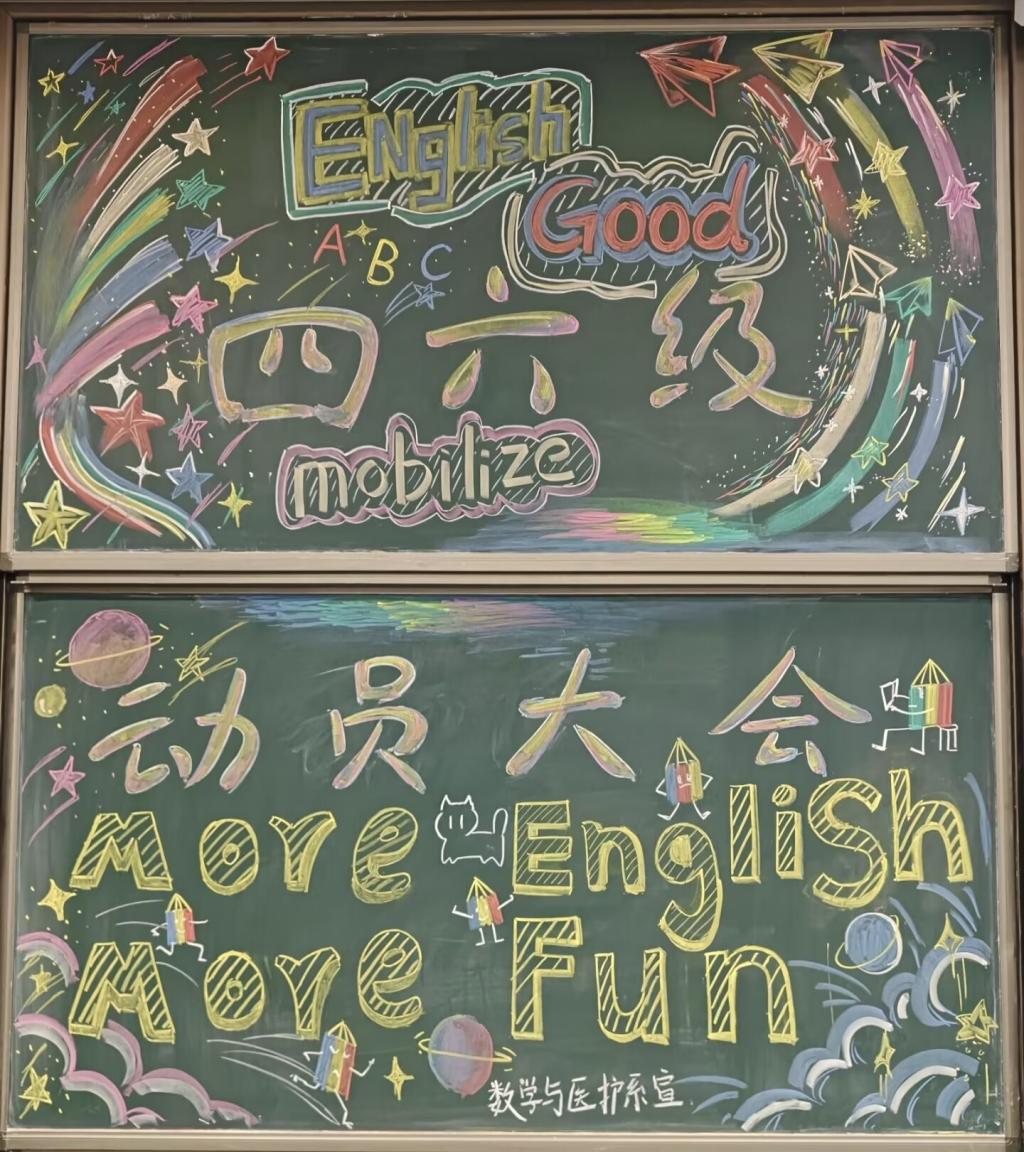 English
Good
A B C
四六级
mobilize
动员大会
More English
More Fun
数学与医护系宣